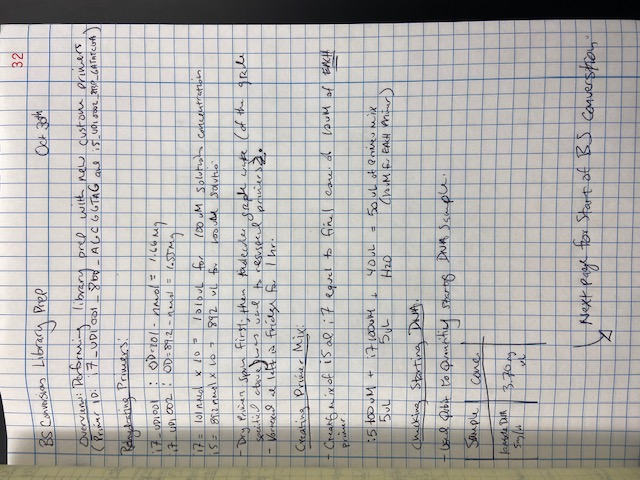 32
BS Conversion Library Prep Oct 30th
Overview: Performing library prep with new custom primers
(Primer ID: i7_UDI001_ _AGCGGTAG and i5_UDI0002_
Rehydrating Primers:
i7_UDI001 : OD= - nmol = 1.66mg
i7_UDI002 : OD=89.2 - nmol = 1.55mg
i7 = 101nmol x 10 = 1010uL for 100uM solution concentration
i5 = 89.2nmol x 10 = 892 uL for 100uM solutio
- Dry Primers spun first, then molecular grade (of the
specified above) was used to resuspend primers.
- Vortexed left in fridge for 1 hr.
Creating Primer Mix:
- Create mix of i5 i7 equal to final conc. of 10uM of EACH
primer
i5 100uM + i7 100uM + 40uL = 50uL of primer mix
5uL 5uL H2O (10uM for EACH Primer)
Checking Starting DNA.
- Used Qubit to Quantify DNA Sample.
Sample Conc.
lambda DNA 3.70 ng
5ng/uL uL
Next page for Start of BS Conversion.